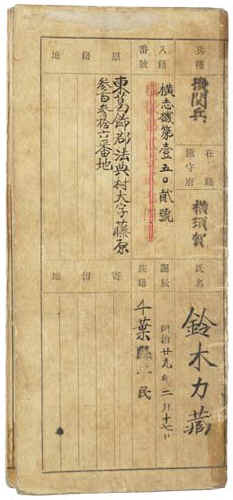 兵種 機関兵
在籍鎮守府 横須賀
氏名 鈴木力蔵
入籍番號 横志機第壹五〇貳號
誕辰 明治廿九年二月十七日
族籍 千葉縣平民
原籍地 東葛飾郡法典村大字藤原
参百参拾六番地
寄留地